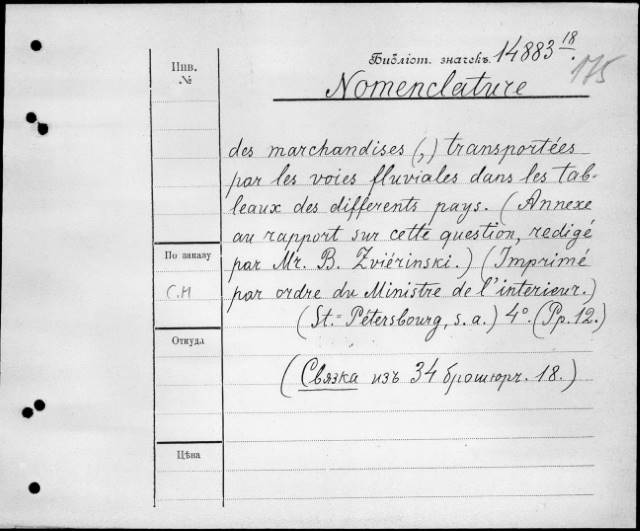 Библіот. значекъ 14883 18.
175
Инв.
№
Nomenclature
des marchandises (,) transportées
par les voies fluviales dans les tab-
leaux des differents pays. (Annexe
au rapport sur cette question, redigé
par Mr. B. Zviérinski.) (Imprimé
par ordre du Ministre de l'interieur.)
(St.=Pétersbourg, s. a.) 4°. (Pp. 12.)
(Связка изъ 34 брошюръ. 18.)
По заказу
С.М
Откуда
Цѣна